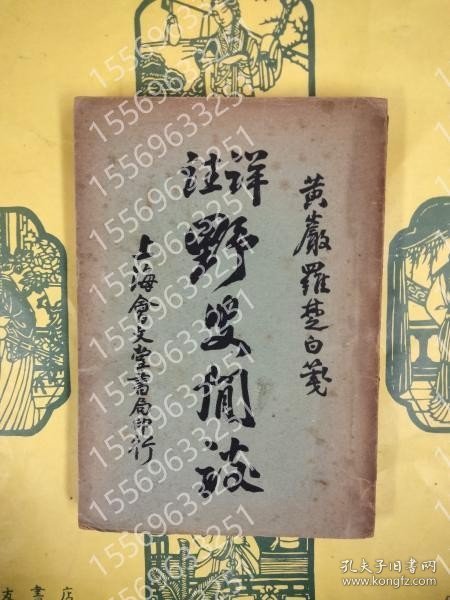 黃巖羅楚白箋
詳註
野叟閒談
上海會文堂書局印行
友書店
15569633251
孔夫子旧书网
www.kongfz.com